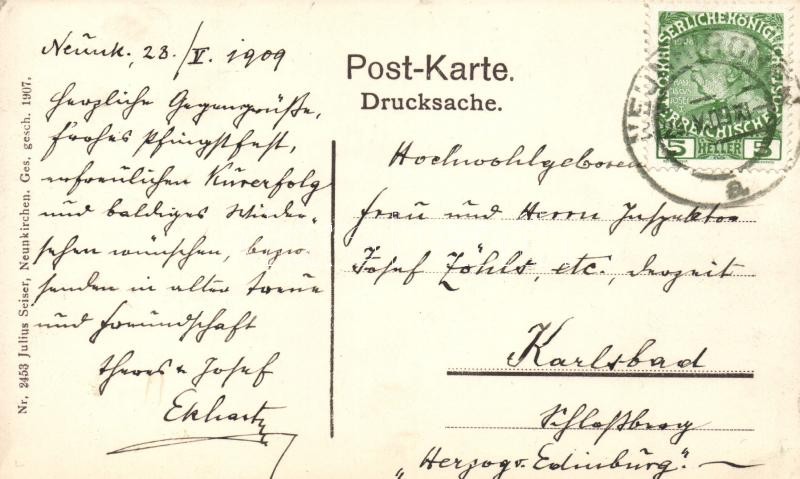 Neunk. 28./V. 1909
herzliche Gegengrüße,
frohes Pfingstfest,
erfreulichen Kurerfolg
und baldiges Wieder-
sehen wünschen, bezw.
senden in alter Treue
und Freundschaft
Theres u Josef
Ekhart
Nr. 2453 Julius Seiser, Neunkirchen. Ges. gesch. 1907.
Post-Karte.
Drucksache.
5 HELLER 5
Hochwohlgeboren
Frau und Herrn Inspektor
Josef Zöhls, etc., derzeit
Karlsbad
Schloßberg
"Herzog v. Edinburg".